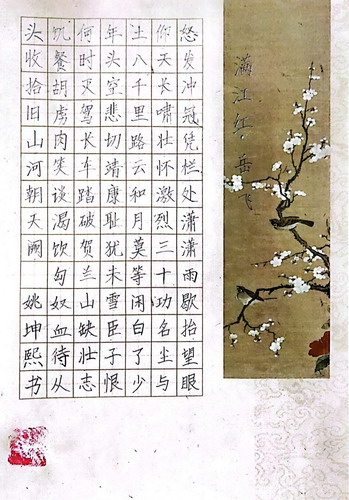 满江红·岳飞
怒发冲冠凭栏处潇潇雨歇抬望眼
仰天长啸壮怀激烈三十功名尘与
土八千里路云和月莫等闲白了少
年头空悲切靖康耻犹未雪臣子恨
何时灭驾长车踏破贺兰山缺壮志
饥餐胡虏肉笑谈渴饮匈奴血待从
头收拾旧山河朝天阙 姚坤熙书